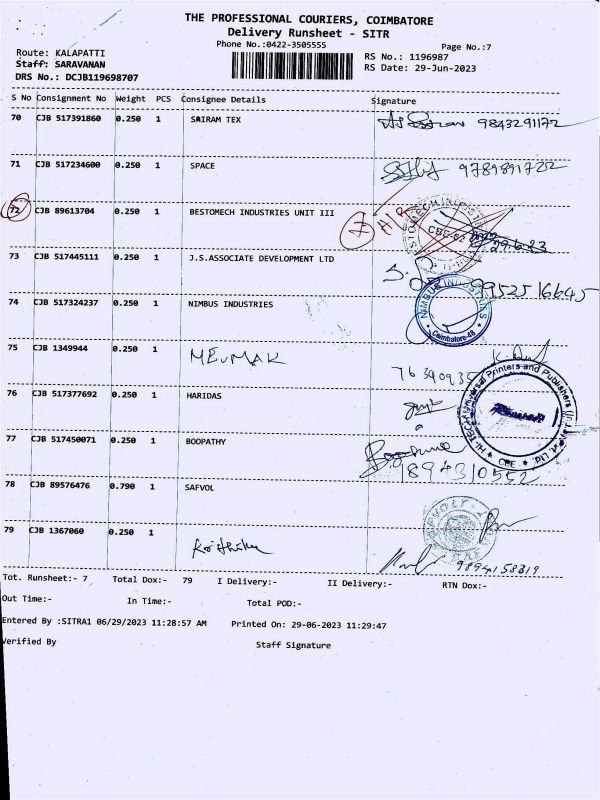 THE PROFESSIONAL COURIERS, COIMBATORE
Delivery Runsheet - SITR
Phone No.:0422-3505555
Page No.:7
Route: KALAPATTI
RS No.: 1196987
Staff: SARAVANAN
RS Date: 29-Jun-2023
DRS No.: DCJB119698707
S No Consignment No Weight PCS Consignee Details Signature
70 CJB 517391860 0.250 1 SRIRAM TEX 9843291172
71 CJB 517234600 0.250 1 SPACE 9789891722
72 CJB 89613704 0.250 1 BESTOMECH INDUSTRIES UNIT III
73 CJB 517445111 0.250 1 J.S.ASSOCIATE DEVELOPMENT LTD 9952516645
74 CJB 517324237 0.250 1 NIMBUS INDUSTRIES
NIMBUS INDUSTRIES
Coimbatore-48
75 CJB 1349944 0.250 1 MEVMAK
76 CJB 517377692 0.250 1 HARIDAS
Universal Printers and Publishers
CPE
77 CJB 517450071 0.250 1 BOOPATHY
9894310552
78 CJB 89576476 0.790 1 SAFVOL
79 CJB 1367060 0.250 1
9894158319
Tot. Runsheet:- 7 Total Dox:- 79 I Delivery:- II Delivery:- RTN Dox:-
Out Time:- In Time:- Total POD:-
Entered By :SITRA1 06/29/2023 11:28:57 AM Printed On: 29-06-2023 11:29:47
Verified By Staff Signature